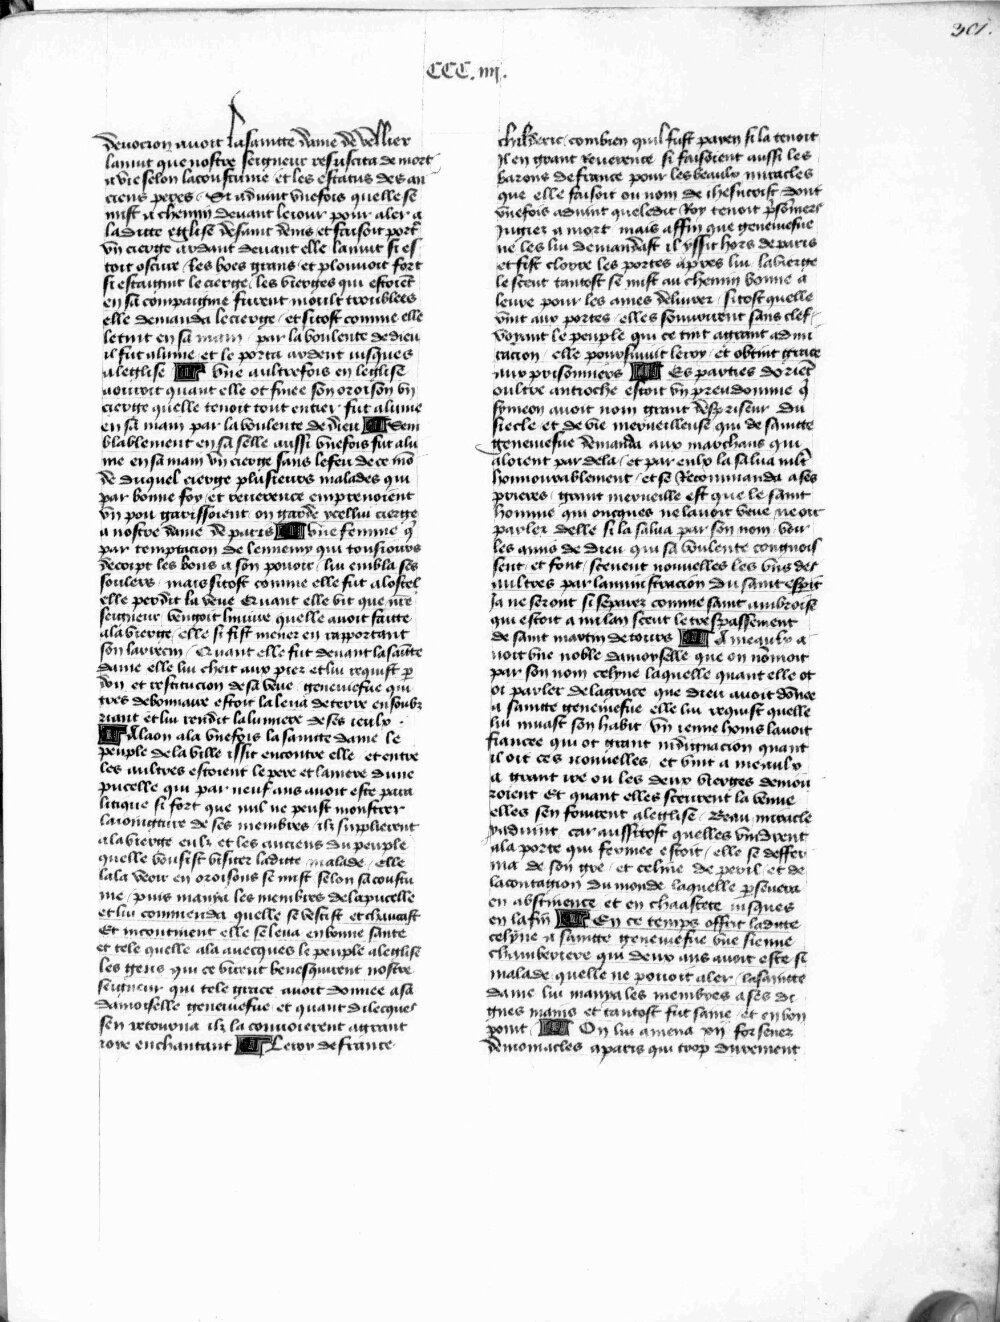 301.
CCC. iiij.
devocion avoit la saincte dame de veillier
la nuit que nostre seigneur resuscita de mort
a vie selon la coustume et les estatus des an
ciens peres / Et advint vne fois quelle se
mist a chemin devant le iour pour aler a
la dicte eglise de saint denis et faisoit port
vn cierge ardant devant elle la nuit si es
toit oscure / les boes grans / et plouuoit fort
si estaigni le cierge / les vierges qui estoiẽt
en sa compaignie furent moult troublees
elle demanda le cierge / et si tost comme elle
le tint en sa main / par la voulente de dieu
il fut alume et le porta ardent iusques
a leglise vne aultre fois en leglise
avint quant elle ot finee son oroison vn
cierge quelle tenoit tout entier fut alume
en sa main par la voulente de dieu Sem
blablement en sa selle aussi vne fois fut alu
me en sa main vn cierge sans le feu de ce mõ
de duquel cierge plusieurs malades qui
par bonne foy / et reuerence emprenoient
vn pou garissoient / on garde ycellui cierge
a nostre dame de paris vne femme q̃
par temptacion de lennemy qui tousiours
decoipt les bons a son pouoir / lui embla ses
soulers / mais si tost comme elle fut a lostel
elle perdit la veue Quant elle vit que nr̃e
seigneur vengoit liniure quelle auoit faicte
a la vierge / elle si fist mener en rapportant
son larrecin / Quant elle fut devant la saĩte
dame elle lui cheit aux piez et lui requist p
don et restitucion de sa veue / geneviefue qui
tres debonnaire estoit la leua de terre en soubz
riant et lui rendit la lumiere de ses ieulx .
A laon ala vne fois la saincte dame le
peuple de la ville issit encontre elle / et entre
les aultres estoient le pere et la mere dune
pucelle qui par neuf ans auoit este para
litique si fort que nul ne peust monstrer
la iointure de ses membres ilz supplierent
a la vierge eulz et les anciens du peuple
quelle voulsist visiter la dicte malade / elle
lala veoir en oroisons se mist selon sa coustu
me / puis mania les membres de la pucelle
et lui commenda quelle se vestist et chaucast
Et incontinent elle se leua en bonne sante
et tele quelle ala avecques le peuple a leglise
les gens qui ce virent benesquirent nostre
seigneur qui tele grace auoit donnee a sa
damoiselle geneviefue et quant dilecques
sen retourna ilz la conuoierent a grant
ioye en chantant Le roy de france
childeric / combien quil fust payen si la tenoit
Il en grant Reuerence si faisoient aussi les
barons de france pour les beaulx miracles
que elle faisoit ou nom de ihesucrist dont
vne fois advint que ledit Roy tenoit p̃sõniers
iugiez a mort mais affin que genevefue
ne les lui demandast il yssit hors de paris
et fist clorre les portes apres lui / la vierge
le sceut tantost se mist au chemin bonne a
leure pour les ames deliurer / si tost quelle
vint aux portes / elles souurirent sans clef /
voyant le peuple qui ce tint a grant admi
racion / elle poursuiuit le roy / et obtint grace
aux prisonniers Es parties doriẽt
oultre antioche estoit vn preudomme q̃
symeon auoit nom grant despriseur du
siecle et de vie merueilleuse qui de saincte
genevefue demanda aux marchans qui
aloient par dela / et par eulx la salua mlt
honnourablement / et se Recommanda a ses
prieres / grant merueille est que le saint
homme qui oncques ne lauoit veue ne oir
parler delle si la salua par son nom / voir
les amis de dieu qui sa voulente congnois
sent / et font / sceuent nouuelles les vns des
aultres par laministracion du saint esp̃it
Ja ne seront si separez comme saint ambroise
qui estoit a milan sceut le trespassement
de saint martin de tours A meaulx a
uoit vne noble damoyselle que on nõmoit
par son nom celyne laquelle quant elle ot
oi parler de la grace que dieu auoit dõnee
a saincte geneuiefue elle lui requist quelle
lui muast son habit / vn ienne homs lauoit
fiancee qui ot grant indignacion quant
il oit ces nouuelles / et vint a meaulx
a grant ire ou les deux vierges demou
roient Et quant elles sceurent la venue
elles sen fouirent a leglise / Beau miracle
y advint / car aussitost quelles vindrent
a la porte qui fermee estoit / elle se deffer
ma de son gre / et celine de peril / et de
la contagion du monde laquelle p̱seuera
en abstinence et en chaastete iusques
en la fin En ce temps offrit la dicte
celyne a saincte genevefue vne sienne
chamberiere qui deux ans auoit este si
malade quelle ne pouoit aler / la saincte
dame lui mania les membres a ses di
gnes mains et tantost fut saine / et en bon
point / On lui amena xii forsenez
demoniacles a paris qui trop durement